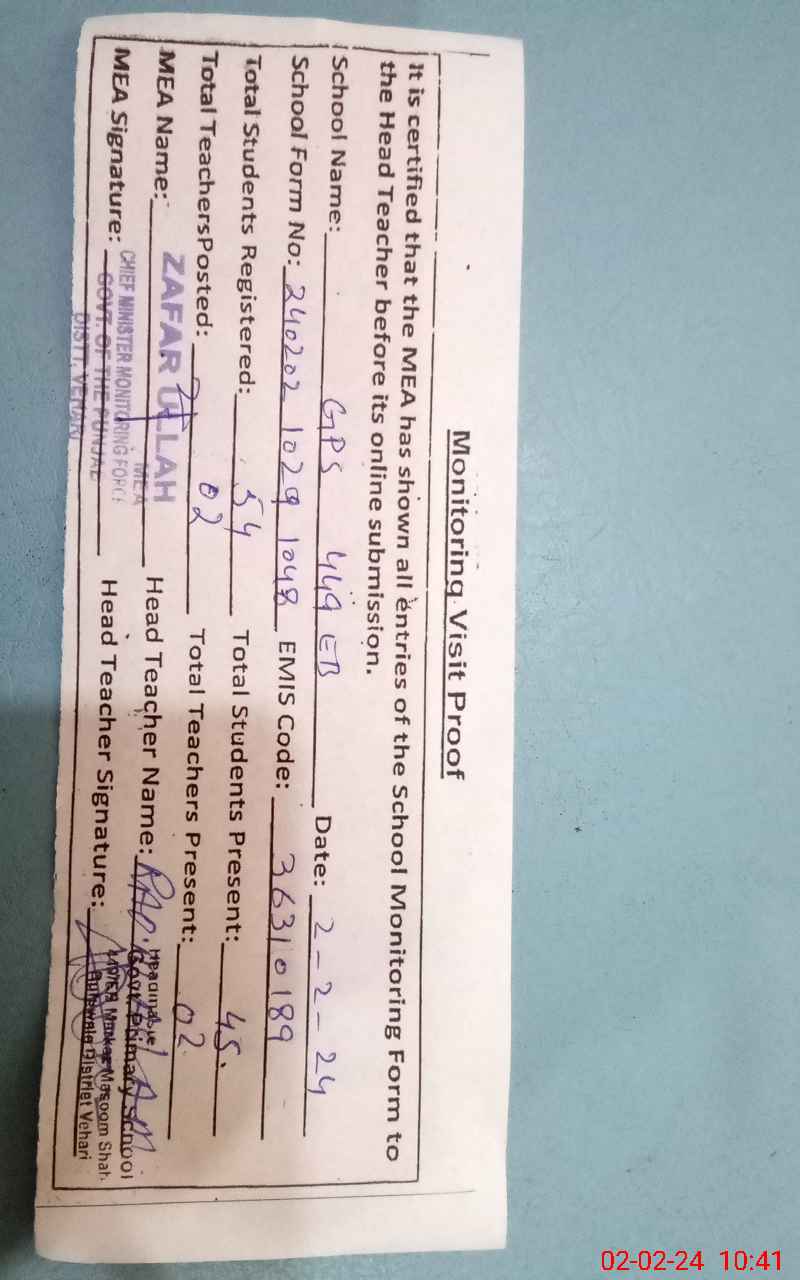 Monitoring Visit Proof
It is certified that the MEA has shown all entries of the School Monitoring Form to
the Head Teacher before its online submission.
School Name: GPS 449 EB Date: 2-2-24
School Form No: 240202 1029 1048 EMIS Code: 36310189
Total Students Registered: 54 Total Students Present: 45
Total TeachersPosted: 02 Total Teachers Present: 02
MEA Name: ZAFAR ULLAH Head Teacher Name:
MEA
MEA Signature: CHIEF MINISTER MONITORING FORCE Head Teacher Signature:
GOVT. OF THE PUNJAB
DISTT. VEHARI
Govt. Primary School
Markaz Masoom Shah
Burewala District Vehari
02-02-24 10:41